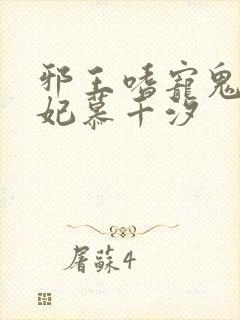 邪王嗜寵鬼
妃慕千汐
屠蘇4